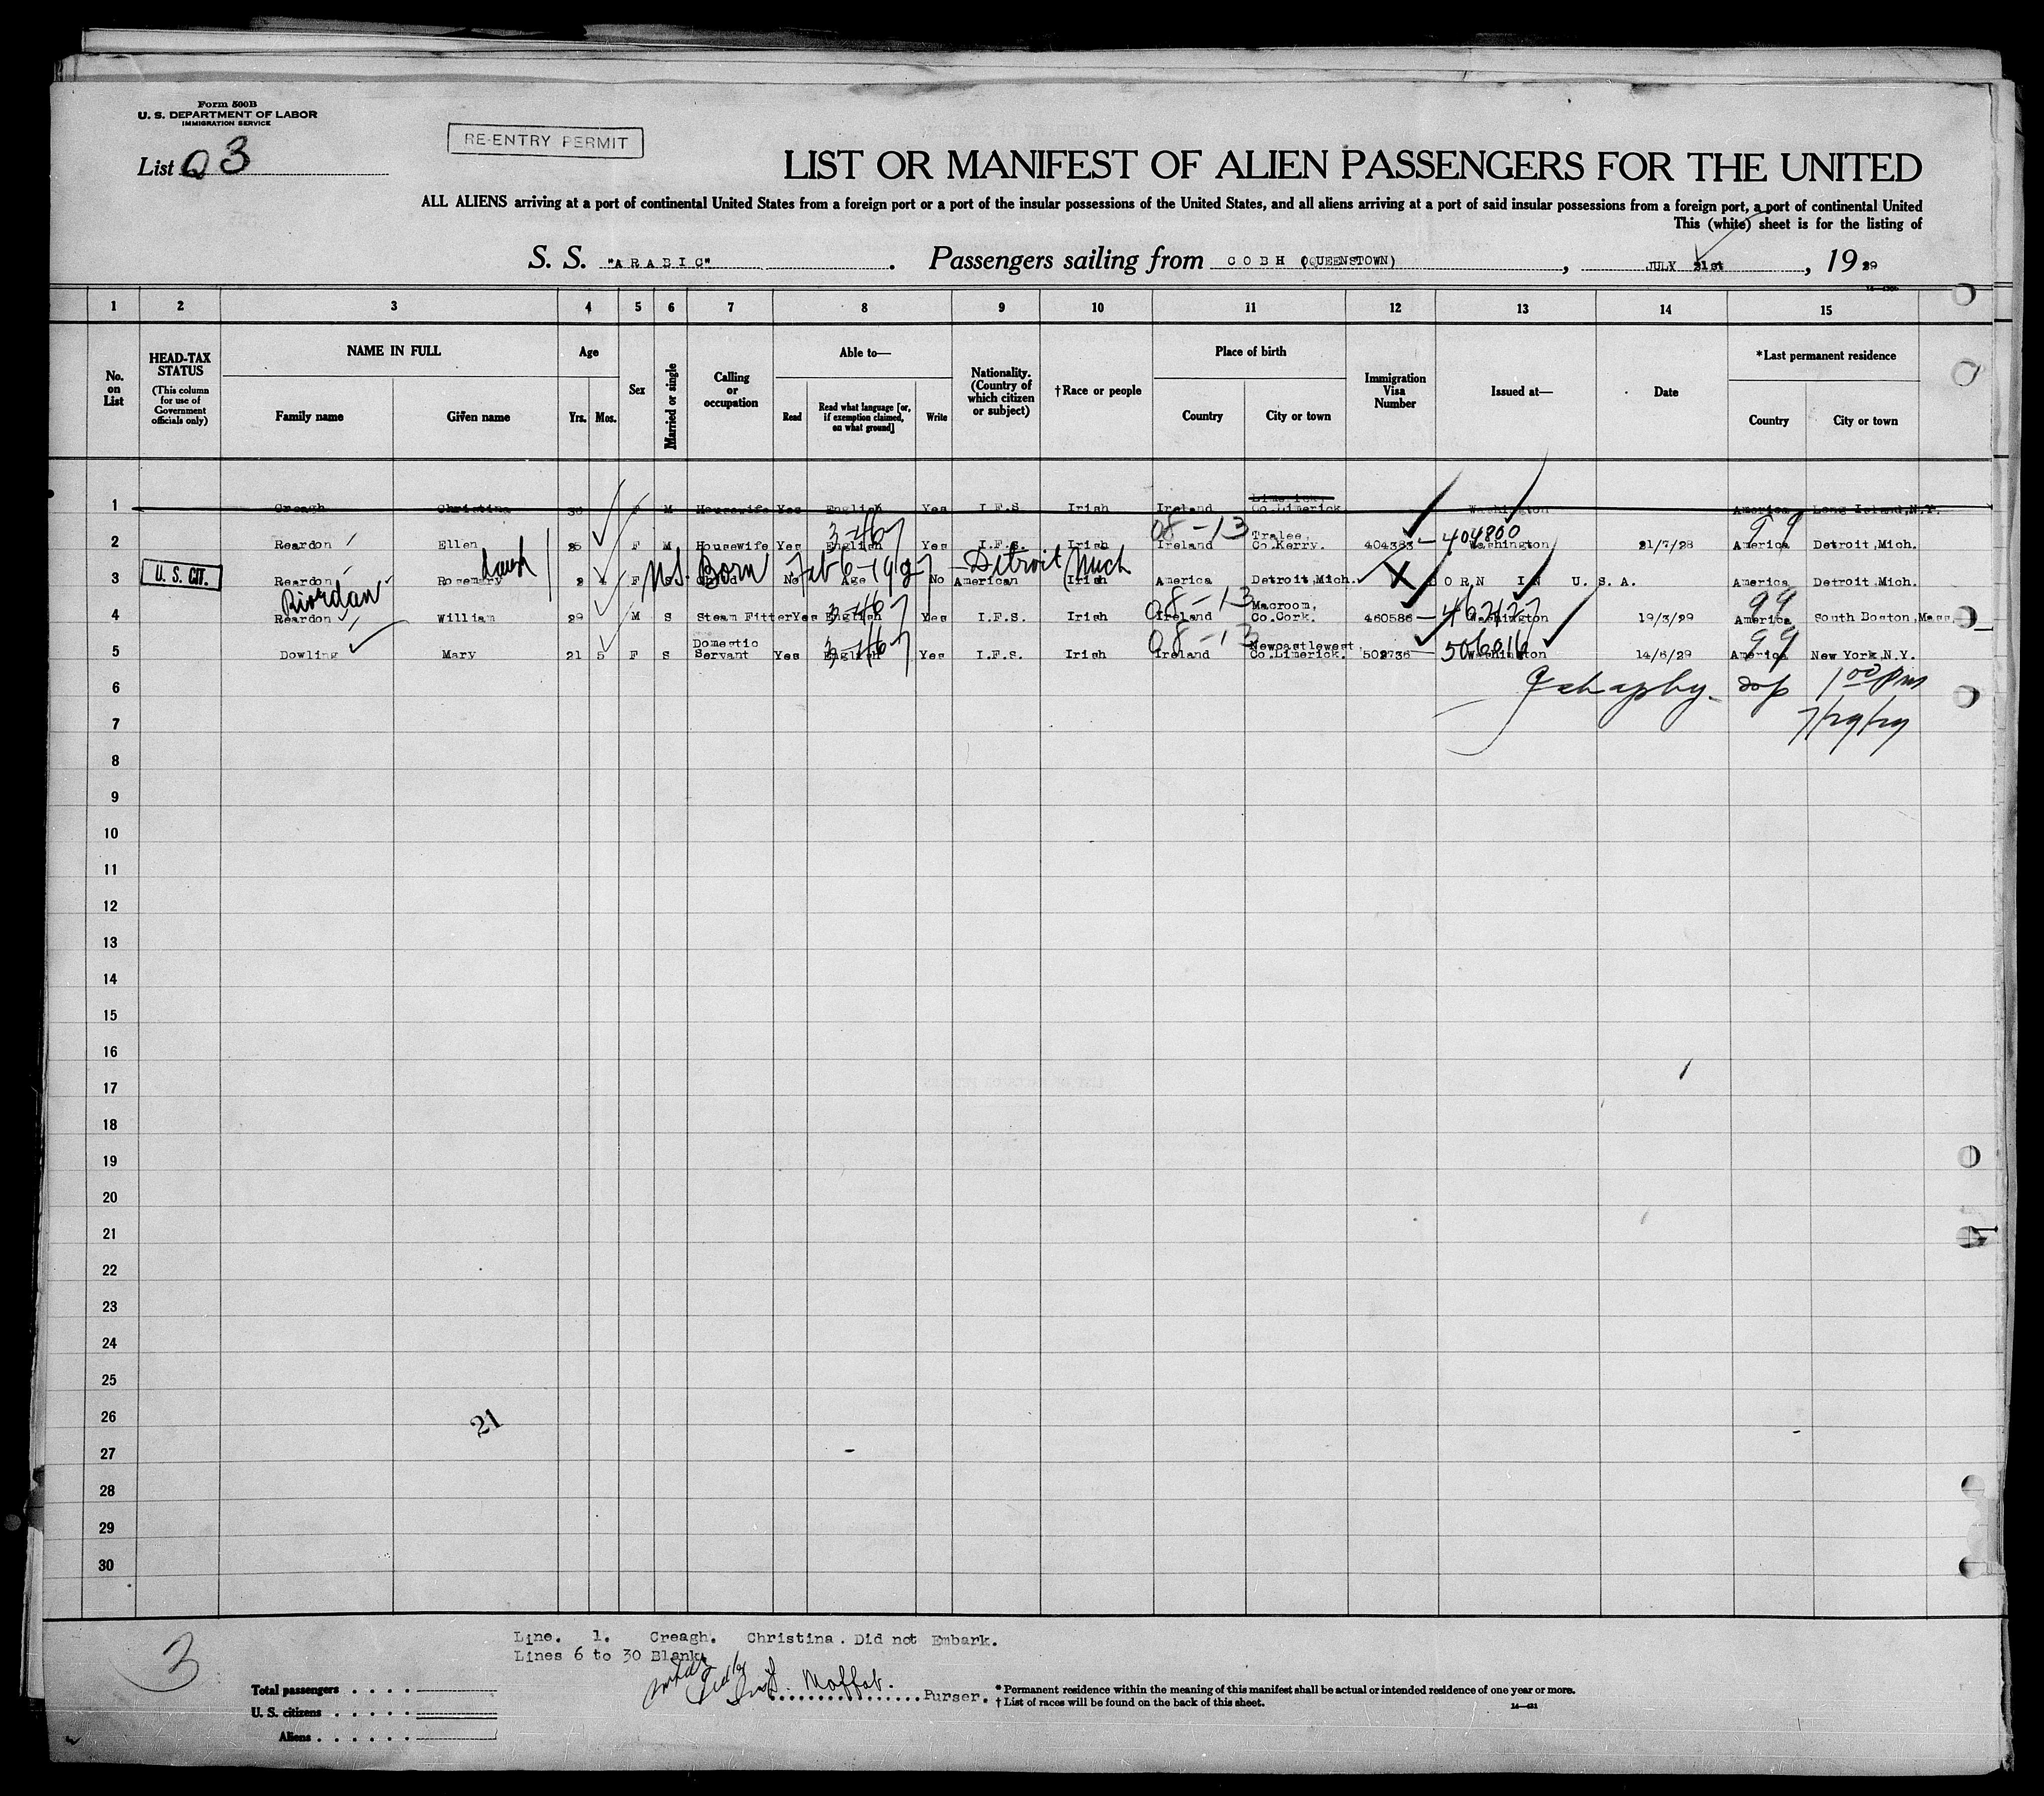 Form 500B
U. S. DEPARTMENT OF LABOR
IMMIGRATION SERVICE
List 3
RE-ENTRY PERMIT
LIST OR MANIFEST OF ALIEN PASSENGERS FOR THE UNITED
ALL ALIENS arriving at a port of continental United States from a foreign port or a port of the insular possessions of the United States, and all aliens arriving at a port of said insular possessions from a foreign port, a port of continental United
This (white) sheet is for the listing of
S. S. "ARABIC". Passengers sailing from COBH (QUEENSTOWN), JULY 21st, 1929
1 2 3 4 5 6 7 8 9 10 11 12 13 14 15
No. on List
HEAD-TAX STATUS
(This column for use of Government officials only)
NAME IN FULL
Family name Given name
Age
Yrs. Mos.
Sex
Married or single
Calling or occupation
Able to—
Read Read what language [or, if exemption claimed, on what ground] Write
Nationality. (Country of which citizen or subject)
†Race or people
Place of birth
Country City or town
Immigration Visa Number
Issued at—
Date
*Last permanent residence
Country City or town
Limerick
1 Creagh Christina 36 F M Housewife Yes English Yes I.F.S Irish Ireland Co.Limerick Washington America Long Island,N.Y.
3-467 08-13 Tralee, 404800 99
2 Reardon Ellen 25 F M Housewife Yes English Yes I.F.S. Irish Ireland Co.Kerry. 404383 Washington 21/7/28 America Detroit,Mich.
Born Feb 6-1927 - Detroit Mich
U. S. CIT.
3 Reardon Rosemary 2 F Child No Age No American Irish America Detroit,Mich. X BORN IN U.S.A. America Detroit Mich.
Riordan 3-467 08-13 Macroom, 99
4 Reardon William 29 M S Steam Fitter Yes English Yes I.F.S. Irish Ireland Co.Cork. 460586 Washington 19/3/29 America South Boston,Mass.
Domestic 3-467 08-13 Newcastlewest, 506016 99
5 Dowling Mary 21 5 F S Servant Yes English Yes I.F.S. Irish Ireland Co.Limerick. 502736 Washington 14/6/29 America New York,N.Y.
6 1 00 pm
7 7/29/29
8
9
10
11
12
13
14
15
16
17
18
19
20
21
22
23
24
25
26
21
27
28
29
30
3
Line. 1. Creagh. Christina. Did not Embark.
Lines 6 to 30 Blank.
Moffat. Purser.
Total passengers
U. S. citizens
Aliens
* Permanent residence within the meaning of this manifest shall be actual or intended residence of one year or more.
† List of races will be found on the back of this sheet.